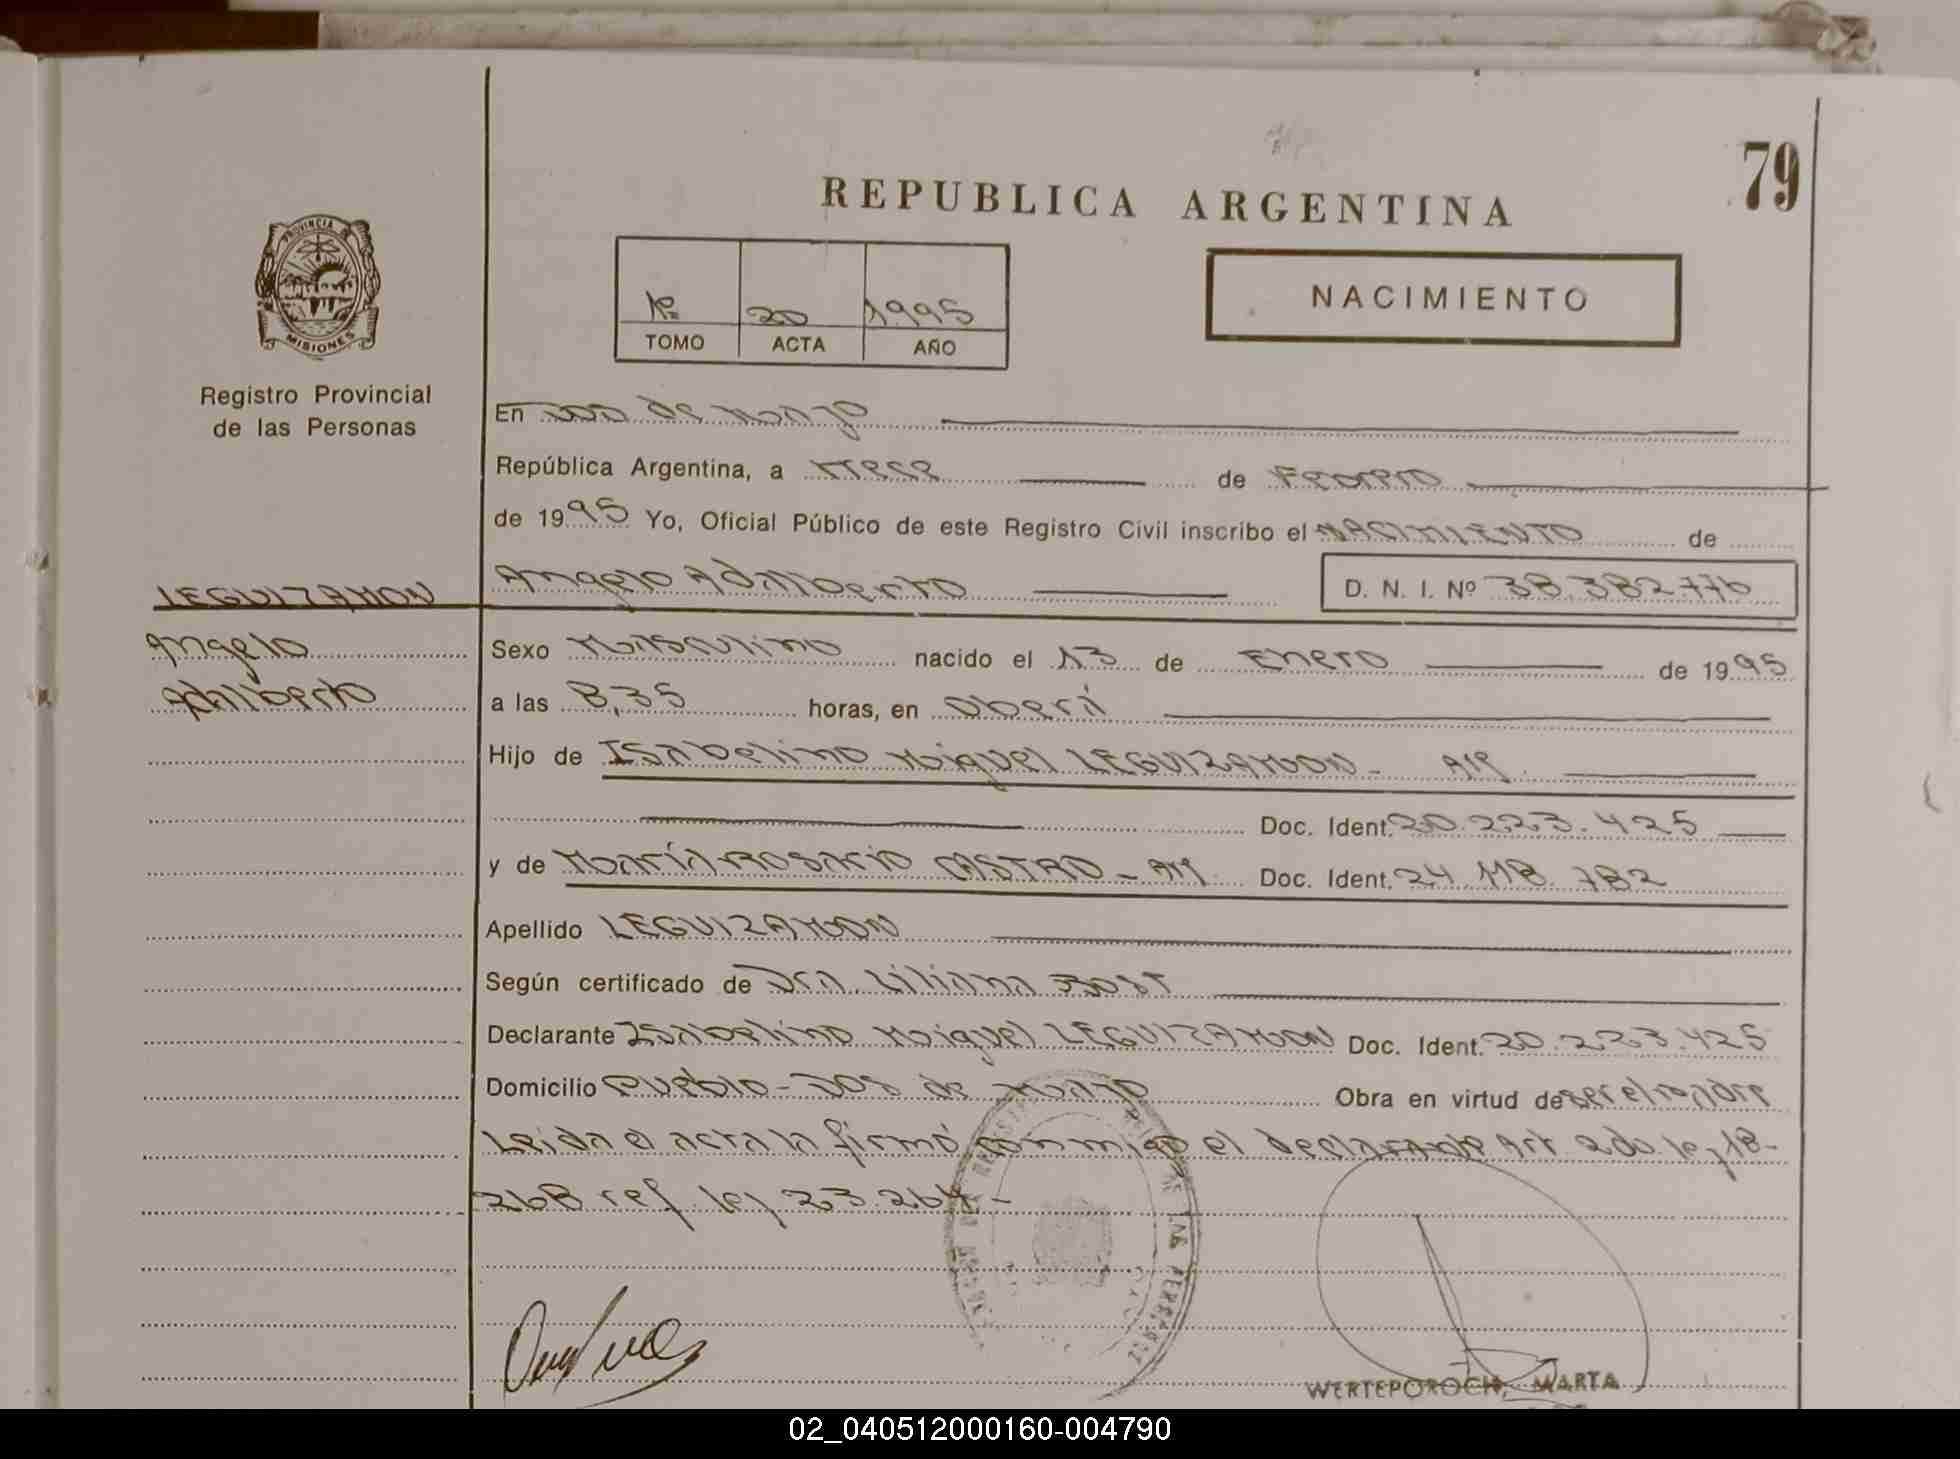 79
REPUBLICA ARGENTINA
PROVINCIA DE
MISIONES
Registro Provincial
de las Personas
1º 20 1995
TOMO ACTA AÑO
NACIMIENTO
En Dos de Mayo
República Argentina, a trece de Febrero
de 1995 Yo, Oficial Público de este Registro Civil inscribo el NACIMIENTO de
LEGUIZAMON
Angelo Adilberto D. N. I. Nº 38.382.776
Angelo
Adilberto
Sexo Masculino nacido el 13 de Enero de 1995
a las 8,35 horas, en Oberá
Hijo de Isabelino Miguel LEGUIZAMON - Arg
Doc. Ident. 20.223.425
y de María Rosario CASTRO - Arg Doc. Ident. 24.118.782
Apellido LEGUIZAMON
Según certificado de Dra. Liliana
Declarante Isabelino Miguel LEGUIZAMON Doc. Ident. 20.223.425
Domicilio Pueblo - Dos de Mayo Obra en virtud de ser el padre
Leida el acta la firmó conmigo el declarante Art 2do ley 18-
268 ref. ley 23.264 -
WERTEPOROCH, MARTA
02_040512000160-004790